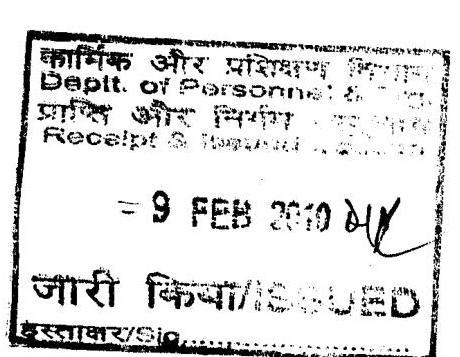 कार्मिक और प्रशिक्षण विभाग
Deptt. of Personnel &
प्राप्ति और निर्गम
Receipt &
- 9 FEB 2010
जारी किया/ISSUED
हस्ताक्षर/Sig..................